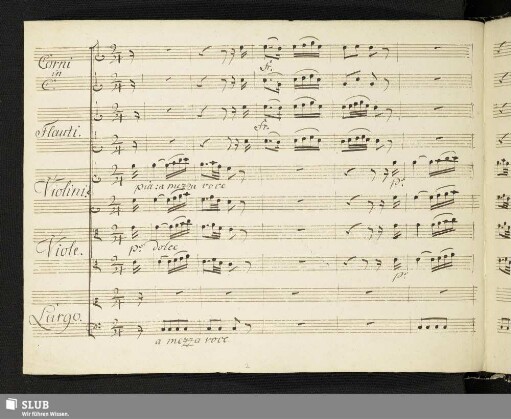 Corni
in
C.
fr.
Flauti.
fr.
Violini
a mezza voce
pº.
Viole.
pº dolce
pº
Largo.
a mezza voce
SLUB
Wir führen Wissen.